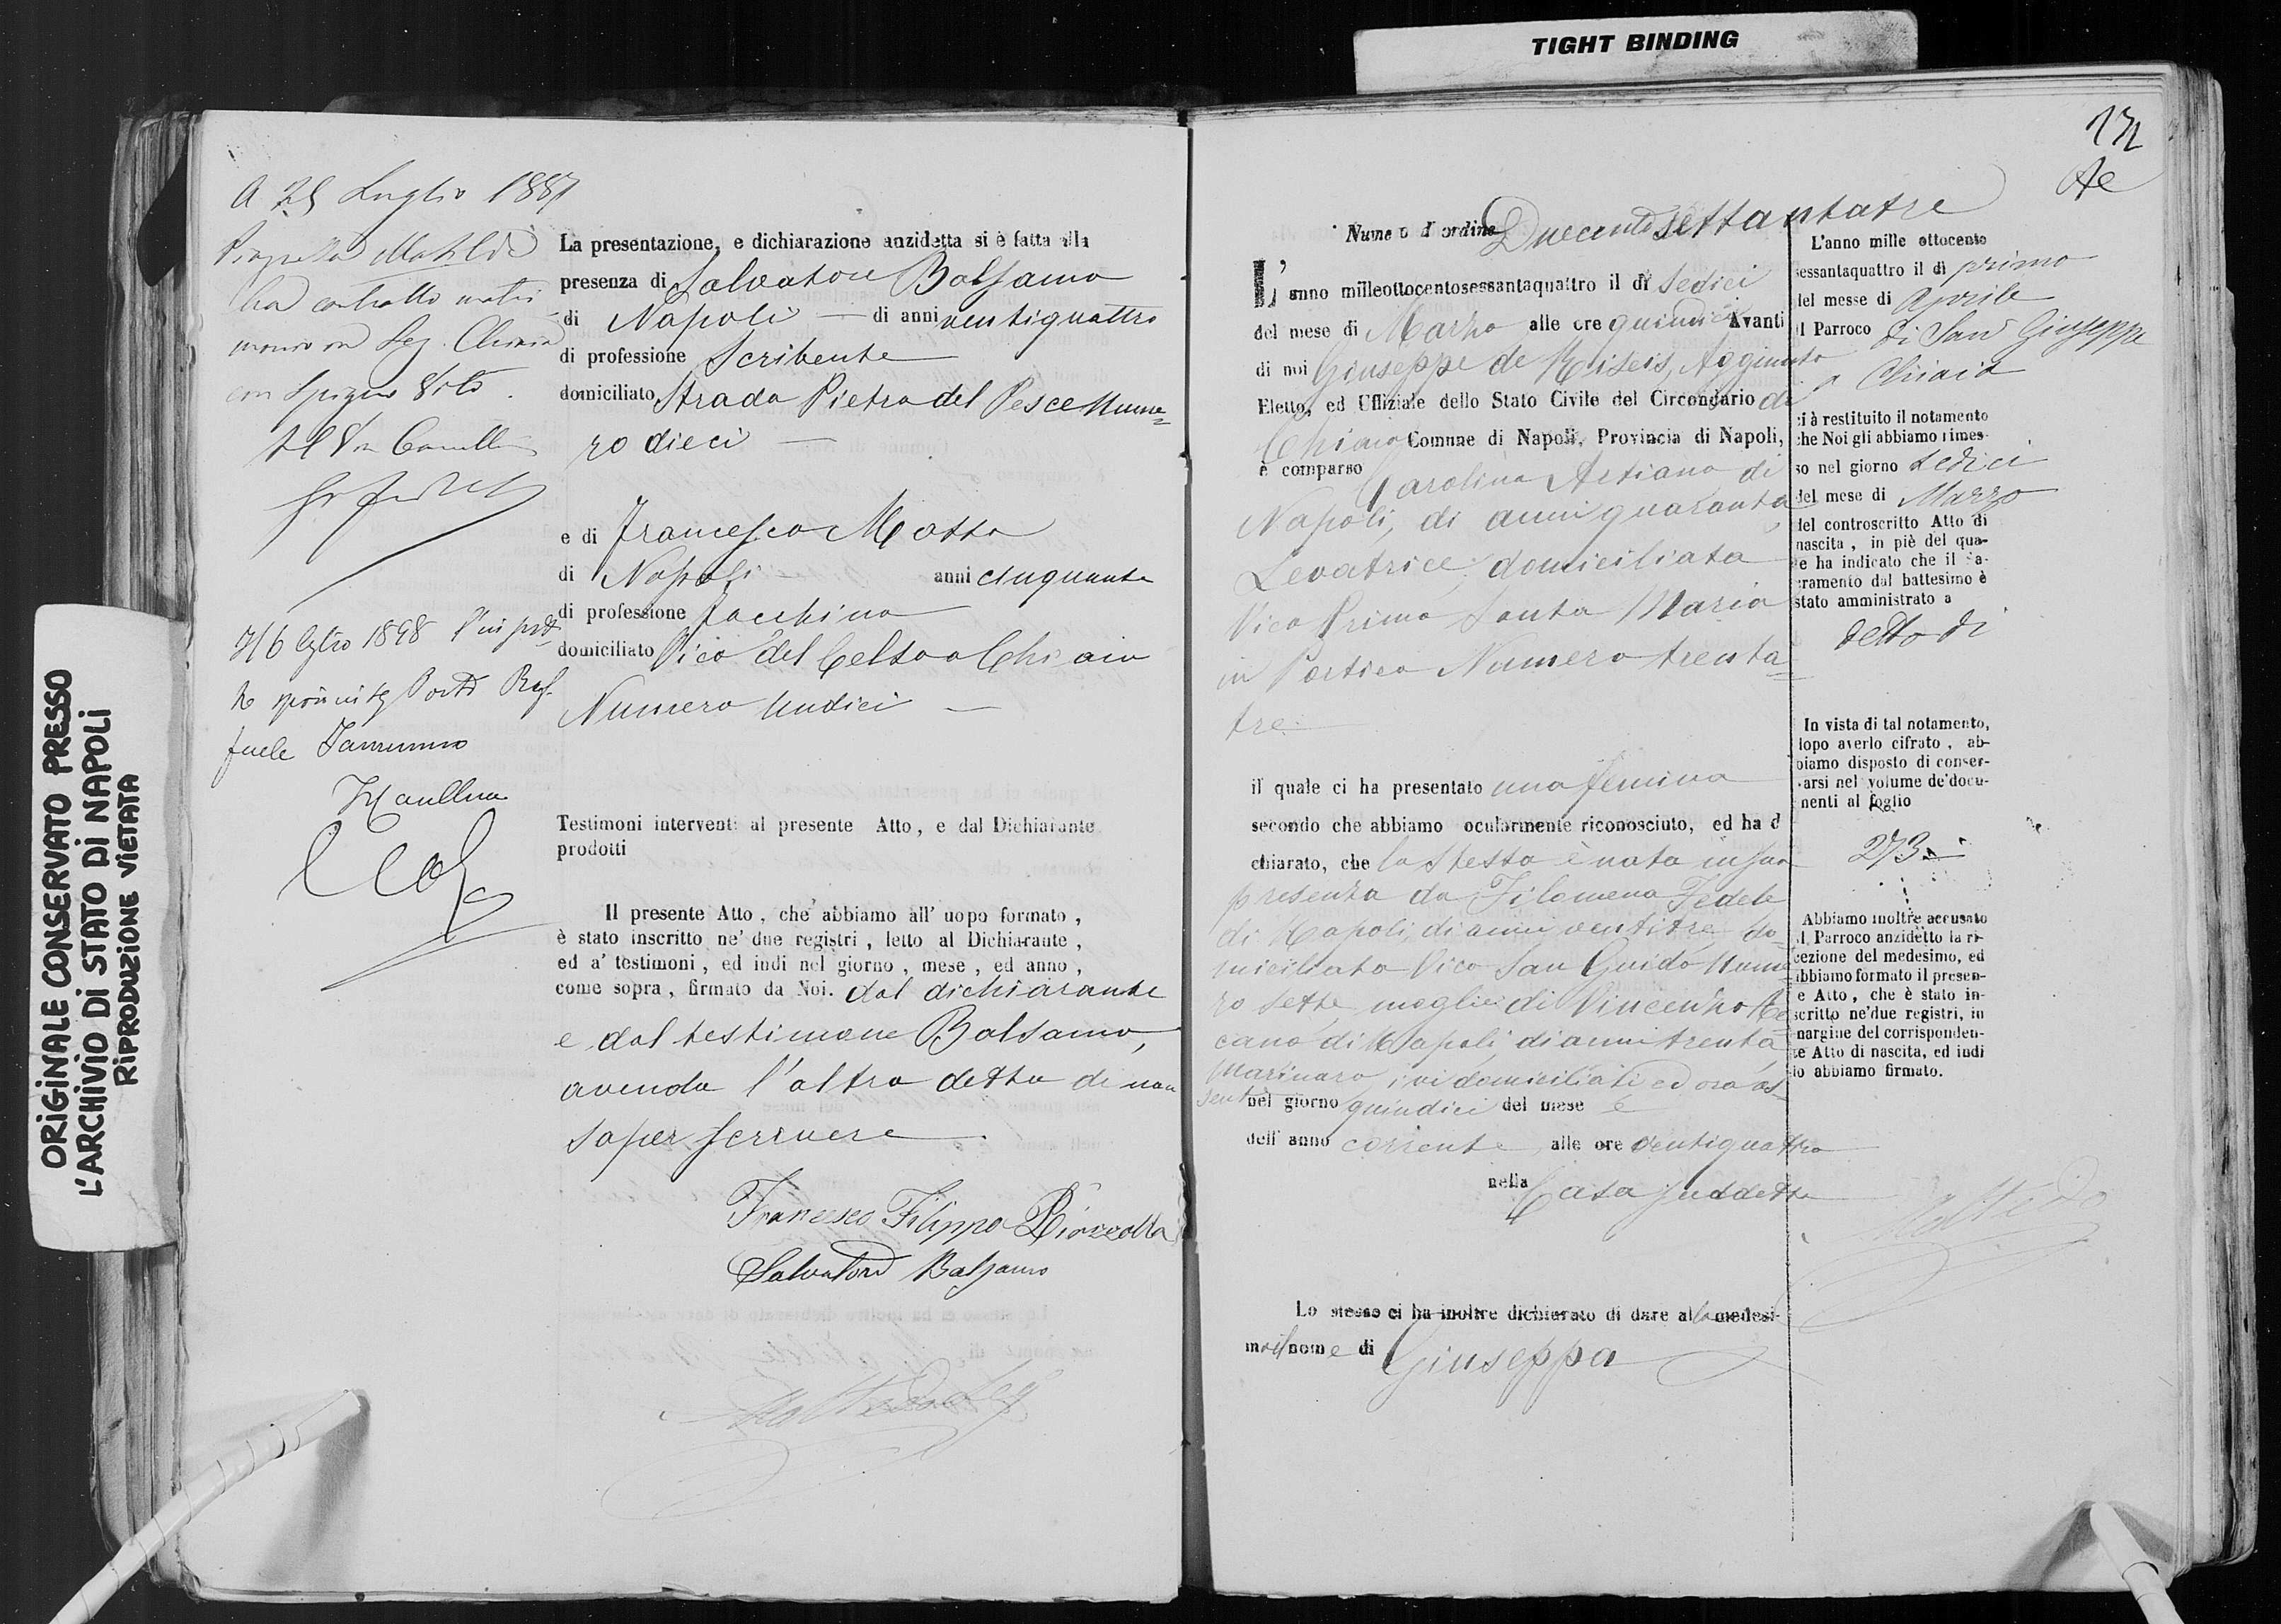 TIGHT BINDING
ORIGINALE CONSERVATO PRESSO
L'ARCHIVIO DI STATO DI NAPOLI
RIPRODUZIONE VIETATA
A 25 Luglio 1887
Matilde
ha contratto matri
monio Sez. Chiaia
con Vito
La presentazione, e dichiarazione anzidetta si è fatta alla
presenza di Salvatore Balsamo
di Napoli — di anni ventiquattro
di professione Scribente
domiciliato Strada Pietra del Pesce Nume=
ro dieci —
e di Francesco Motta
di Napoli — anni cinquanta
di professione facchino
domiciliato Vico del Celso a Chiaia
Numero Undici —
1898
Testimoni intervenuti al presente Atto, e dal Dichiarante
prodotti
Il presente Atto, che abbiamo all' uopo formato,
è stato inscritto ne' due registri, letto al Dichiarante,
ed a' testimoni, ed indi nel giorno, mese, ed anno,
come sopra, firmato da Noi. dal dichiarante
e dal testimone Balsamo,
avendo l'altro detto di non
saper scrivere —
Francesco Filippo
Salvatore Balsamo
Numero d'ordine Duecentosettantatre
L'anno milleottocentosessantaquattro il dì Sedici
del mese di Marzo alle ore quindici Avanti
di noi Giuseppe de Riseis, Aggiunto
Eletto, ed Uffiziale dello Stato Civile del Circondario di
Chiaia Comune di Napoli, Provincia di Napoli,
è comparso Carolina Artiano di
Napoli, di anni quaranta
Levatrice domiciliata
Vico Primo Santa Maria
in Portico Numero trenta=
tre —
il quale ci ha presentato una femina
secondo che abbiamo ocularmente riconosciuto, ed ha d
chiarato, che la stessa è nata in sua
presenza da Filomena Fedele
di Napoli, di anni ventitre, do=
miciliata Vico San Guido Nume=
ro sette moglie di Vincenzo
cano di Napoli, di anni trenta
marinaro, ivi domiciliati ed ora as=
sente nel giorno quindici del mese e
dell' anno corrente alle ore ventiquattro
nella Casa suddetta
Lo stesso ci ha inoltre dichiarato di dare alla medesi-
ma il nome di Giuseppa
L'anno mille ottocento
sessantaquattro il dì primo
del messe di Aprile
il Parroco di San Giuseppe
a Chiaia
ci à restituito il notamento
che Noi gli abbiamo rimes-
so nel giorno sedici
del mese di Marzo
del controscritto Atto di
nascita, in piè del qua-
le ha indicato che il Sa-
cramento dal battesimo è
stato amministrato a
detto dì
In vista di tal notamento,
dopo averlo cifrato, ab-
biamo disposto di conser-
varsi nel volume de' docu-
menti al foglio
273
Abbiamo inoltre accusato
al Parroco anzidetto la ri-
cezione del medesimo, ed
abbiamo formato il presen-
te Atto, che è stato in-
scritto ne'due registri, in
margine del corrisponden-
te Atto di nascita, ed indi
lo abbiamo firmato.